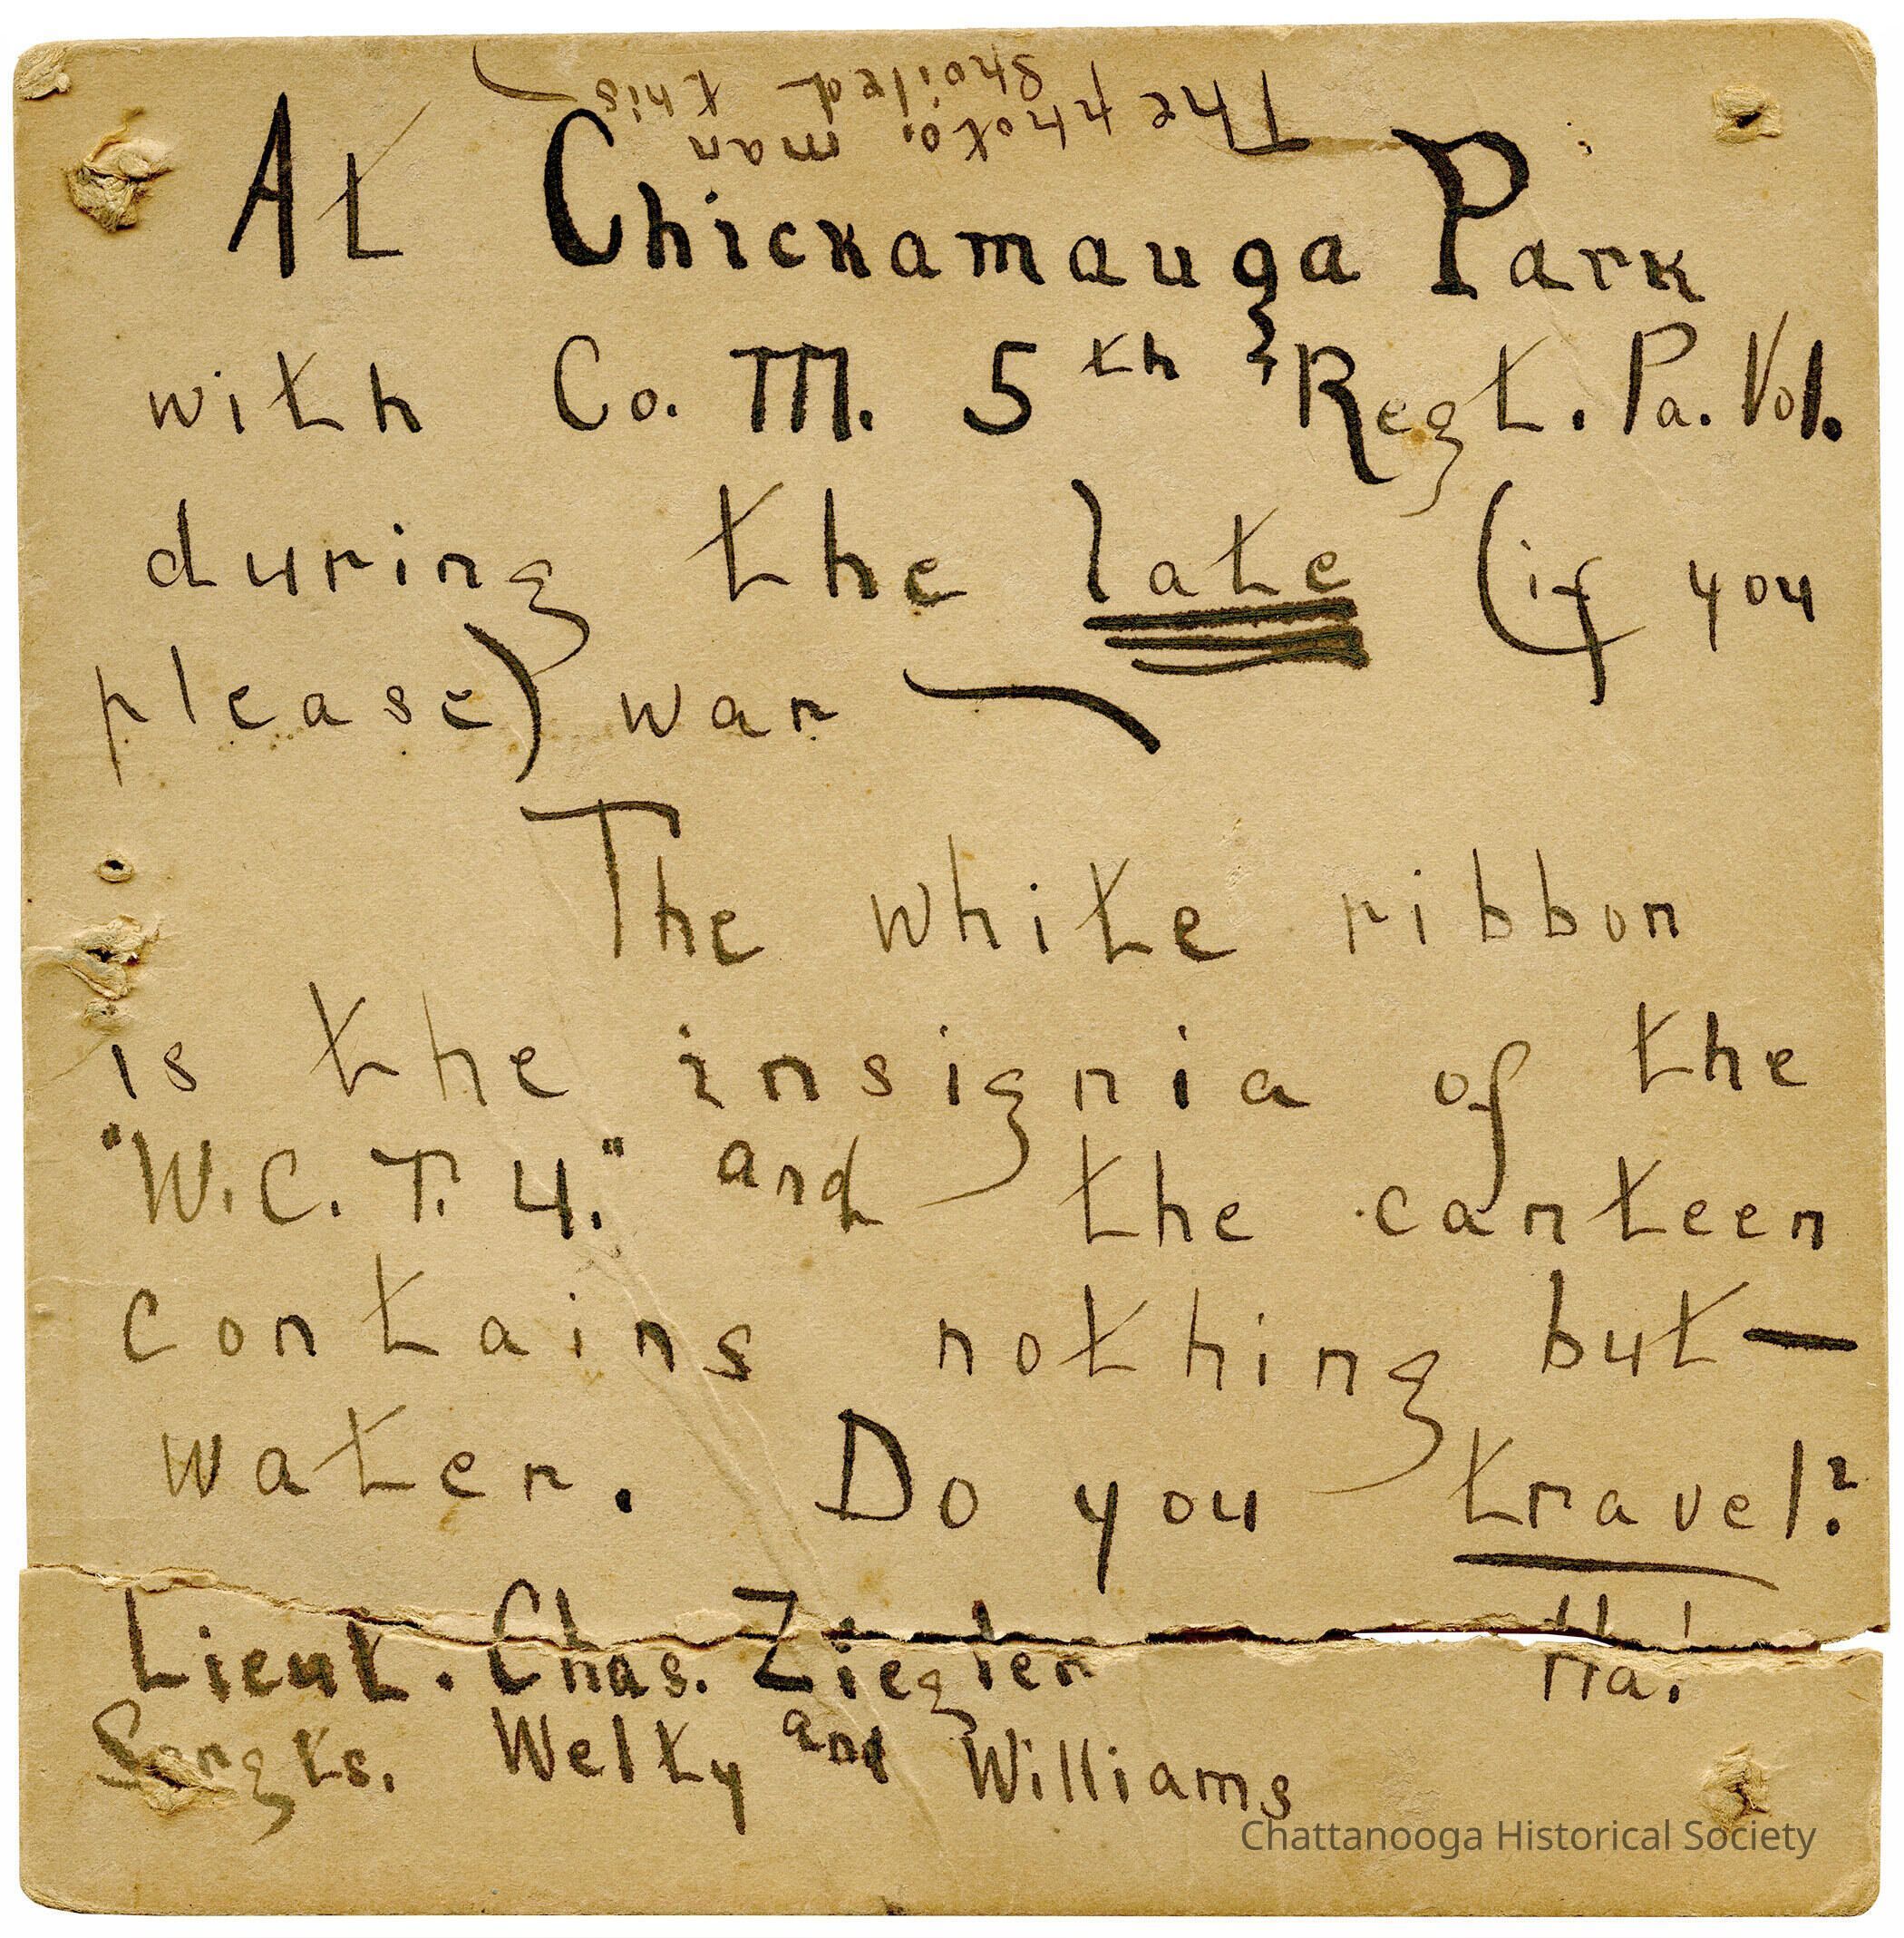 The photo. man
spoiled this
At Chickamauga Park
with Co. M. 5th Regt. Pa. Vol.
during the late (if you
please) war
The white ribbon
is the insignia of the
"W.C.T.U." and the canteen
contains nothing but—
water. Do you travel?
Ha!
Lieut. Chas. Ziegler
Sergts. Welty and Williams
Chattanooga Historical Society